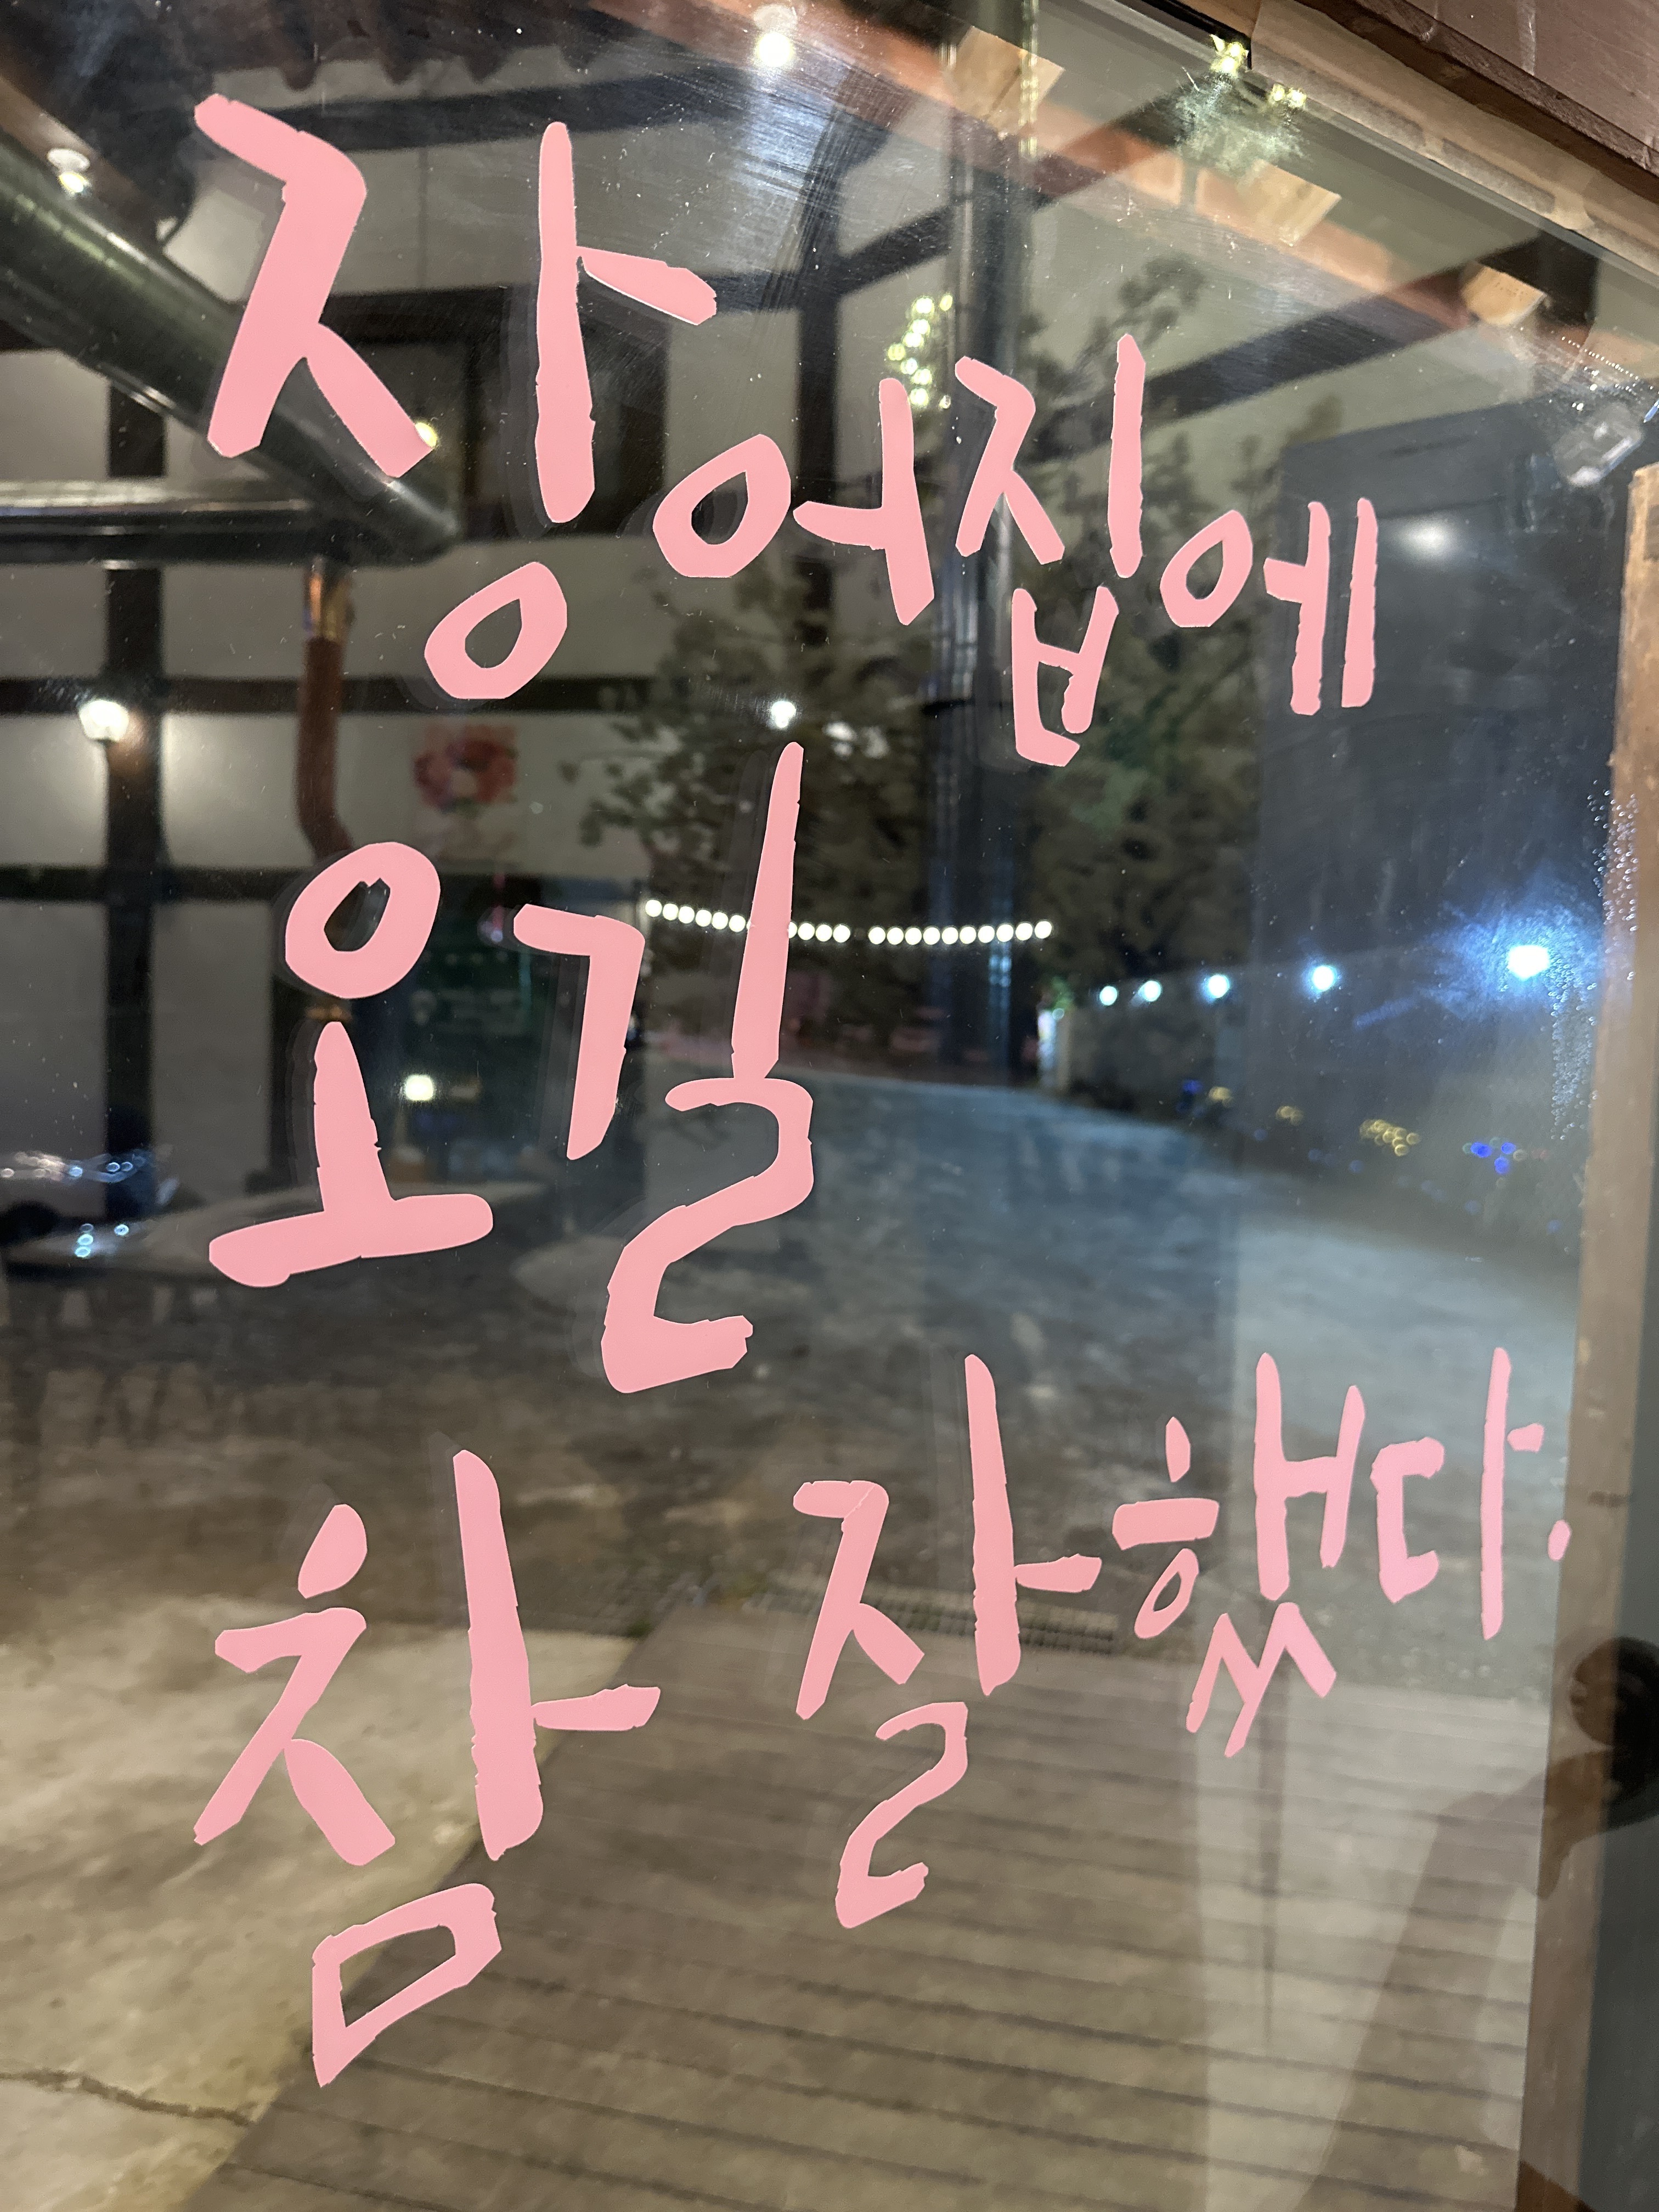 장어집에
오길
참 잘했다.